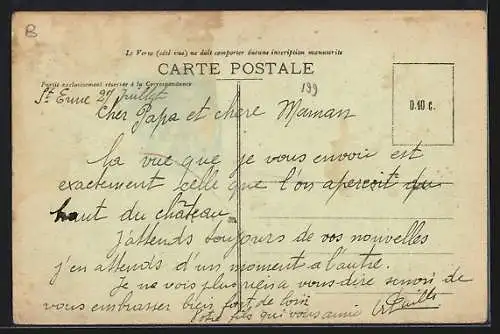 B
Le Verso (côté vue) ne doit comporter aucune inscription manuscrite
CARTE POSTALE
Partie exclusivement réservée à la Correspondance
St Enne 27 Juillet
199
0.10 c.
Cher Papa et chère Maman
la vue que je vous envoie est
exactement celle que l'on aperçoit du
haut du château.
J'attends toujours de vos nouvelles
j'en attends d'un moment à l'autre.
Je ne vois plus rien à vous dire sinon de
vous embrasser bien fort de loin
Votre fils qui vous aime